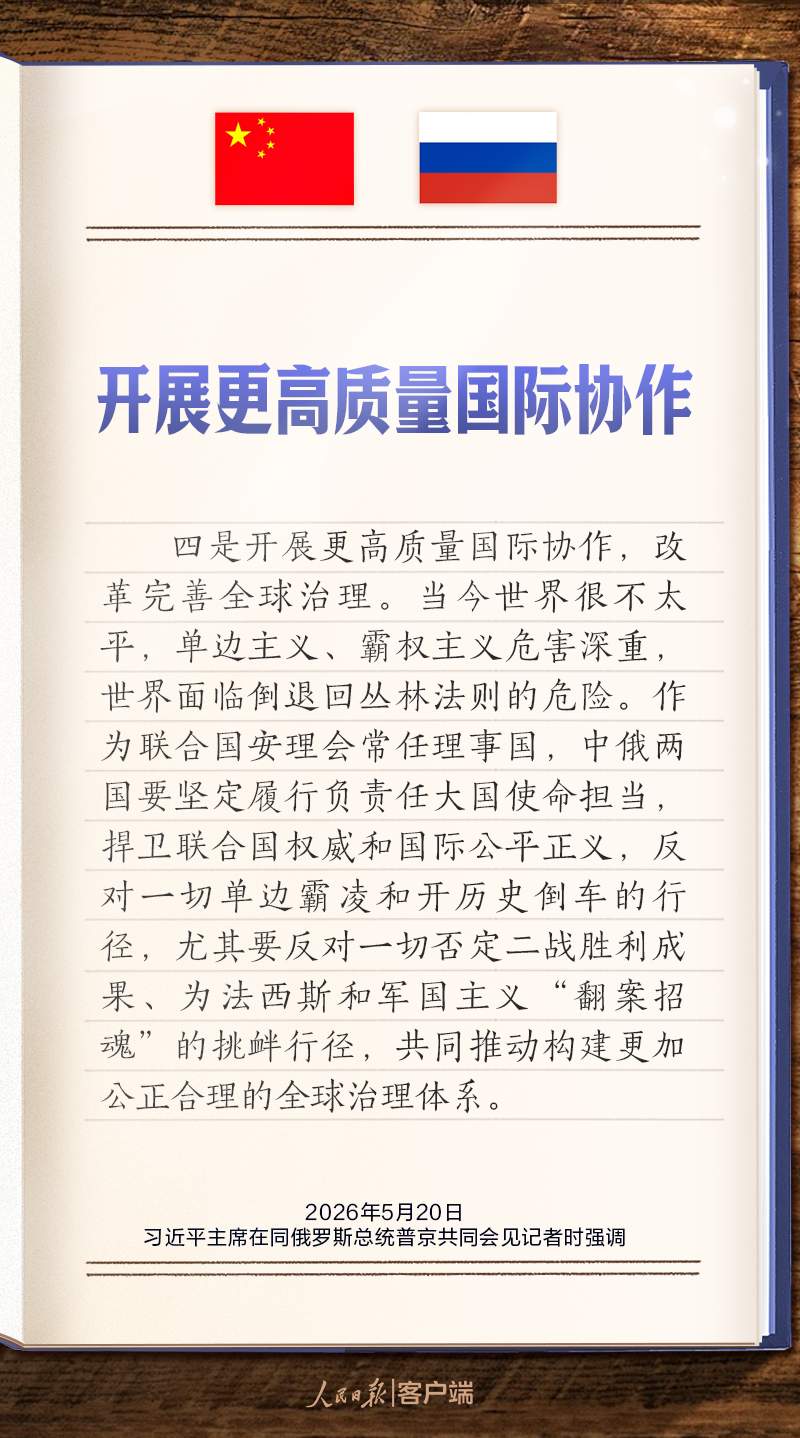 开展更高质量国际协作
四是开展更高质量国际协作，改
革完善全球治理。当今世界很不太
平，单边主义、霸权主义危害深重，
世界面临倒退回丛林法则的危险。作
为联合国安理会常任理事国，中俄两
国要坚定履行负责任大国使命担当，
捍卫联合国权威和国际公平正义，反
对一切单边霸凌和开历史倒车的行
径，尤其要反对一切否定二战胜利成
果、为法西斯和军国主义“翻案招
魂”的挑衅行径，共同推动构建更加
公正合理的全球治理体系。
2026年5月20日
习近平主席在同俄罗斯总统普京共同会见记者时强调
人民日报|客户端